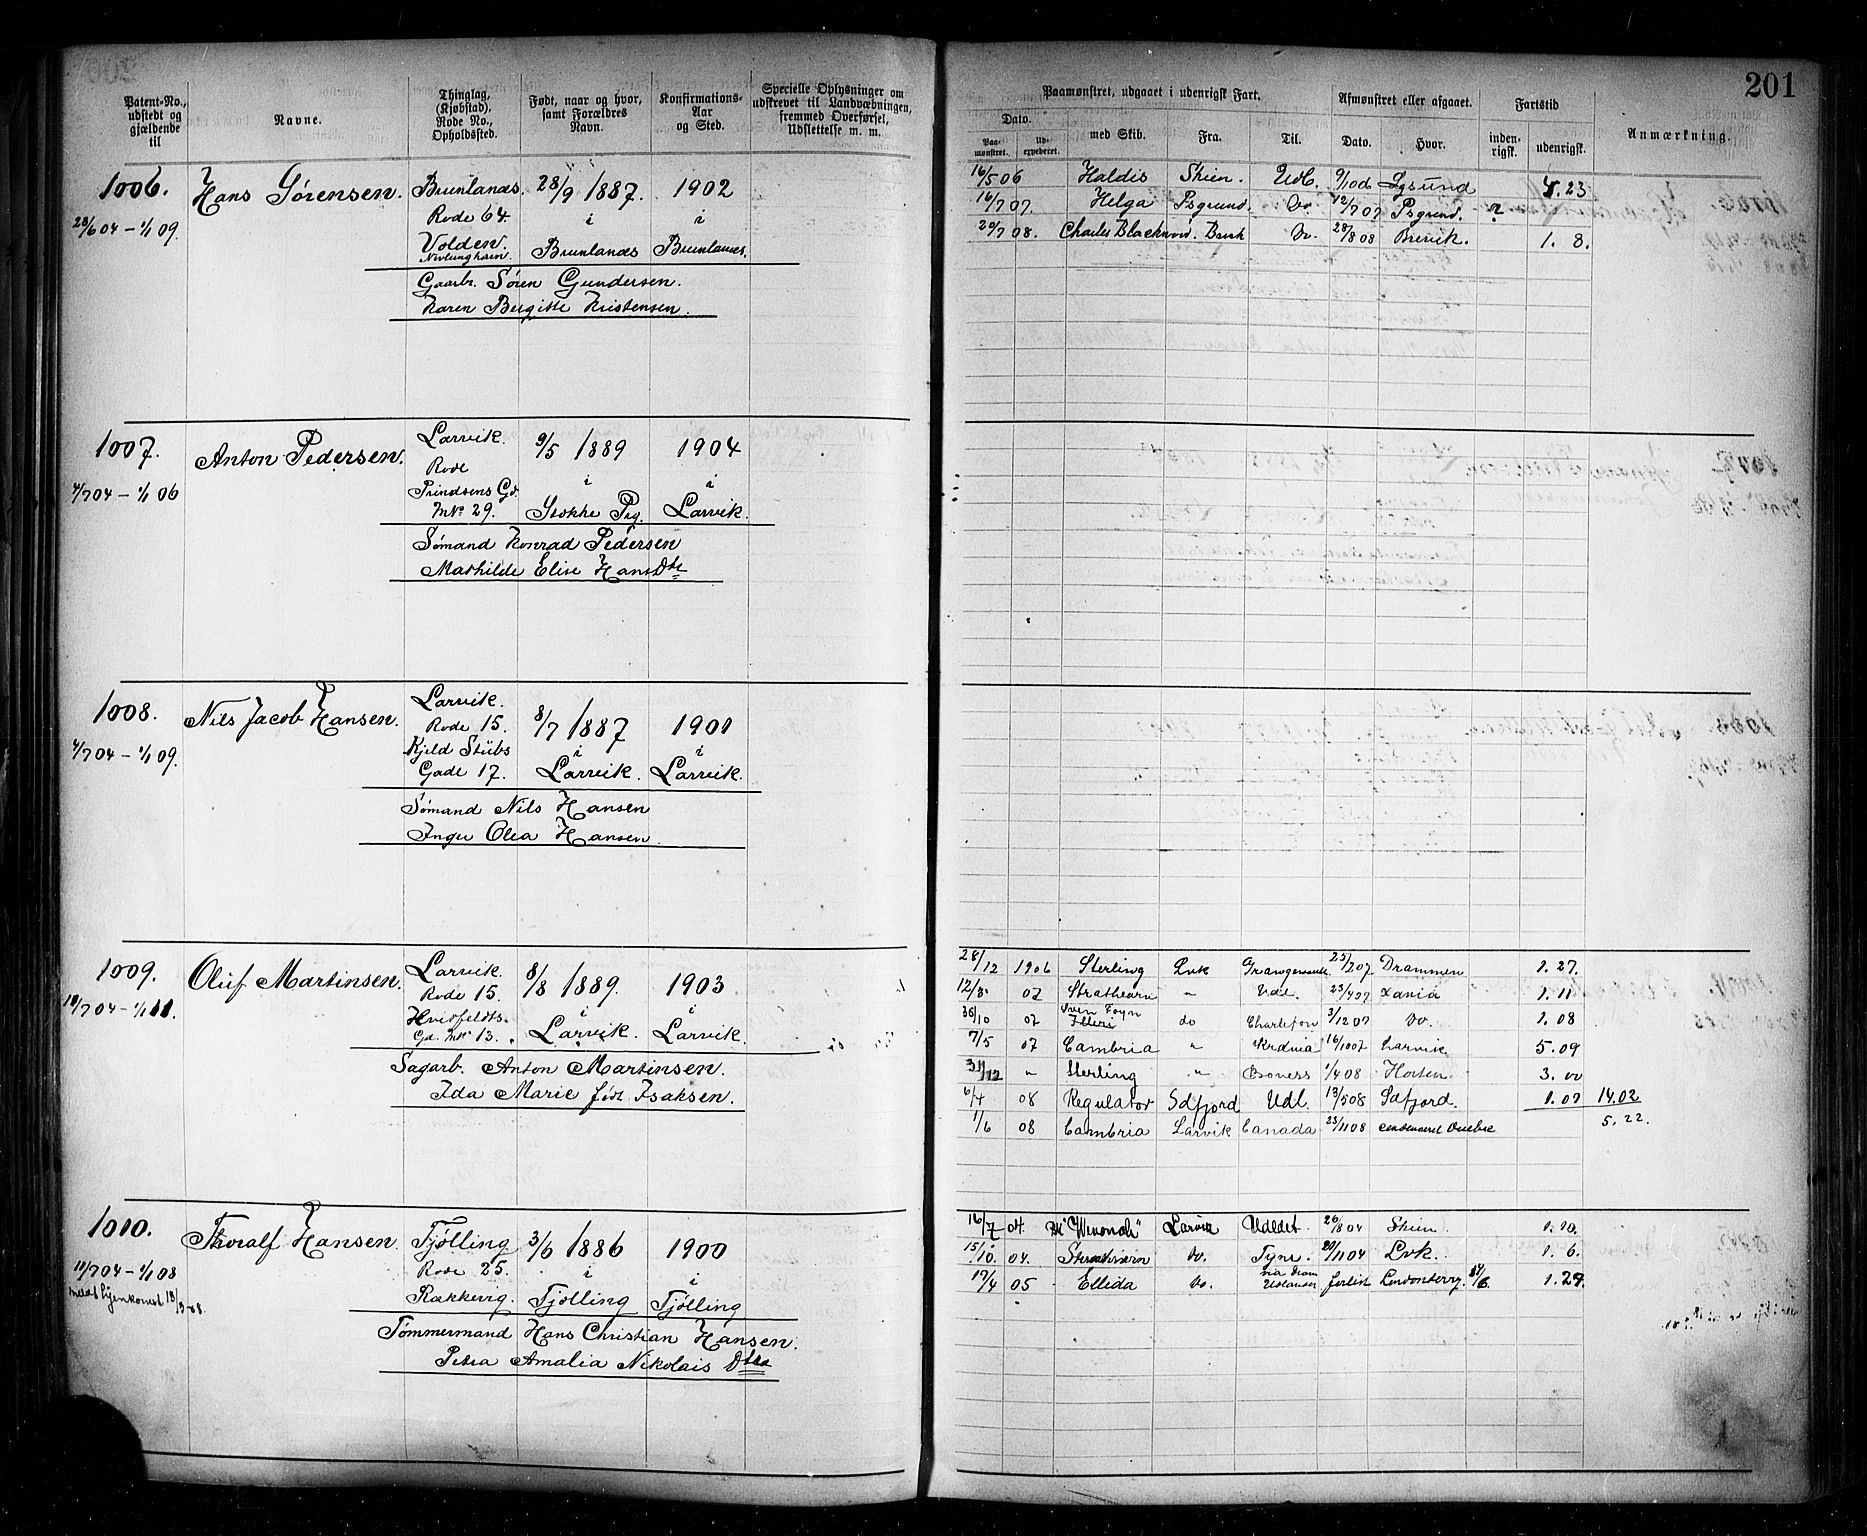 201
Patent-No., udstedt og gjældende til
Navne.
Thinglag, (Kjøbstad), Rode No., Opholdssted.
Født, naar og hvor, samt Forældres Navn.
Konfirmations-Aar og Sted.
Specielle Oplysninger om udskrevet til Landværbningen, fremmed Overførsel, Udslettelse m. m.
Paamønstret, udgaaet i udenrigsk Fart.
Afmønstret eller afgaaet.
Fartstid
Anmærkning.
Dato.
Paa-mønstret.
Ud-expederet.
med Skib.
Fra.
Til.
Dato.
Hvor.
inden-rigsk.
udenrigsk.
1006. Hans Sørensen. Brunlanæs. 28/9 1887. 1902
28/6 04 – 1/1 09. Rode 64 i i
Volden. Brunlanæs Brunlanæs.
Nevlunghavn.
Gaarbr. Søren Gundersen.
Karen Bergitte Kristensen.
16/5 06 Haldis Skien. Udl. 9/10 06 4.23
14/7 07. Helga Psgrund. Do 12/7 07 Psgrund. ?
20/7 08. Charles Do. 28/8 08 Brevik. 1. 8.
1007. Anton Pedersen. Larvik. 9/5 1889 1904
4/7 04 – 1/1 06 Rode i i
Prindsens Gd.
MNo 29. Stokke Pg. Larvik.
Sømand Konrad Pedersen
Mathilde Elise Hans Dtr
1008. Nils Jacob Hansen. Larvik. 8/7 1887 1901
4/7 04 – 1/1 09. Rode 15. i i
Kjeld Stübs
Gade 17. Larvik. Larvik.
Sømand Nils Hansen
Inger Olea Hansen.
1009. Oluf Martinsen. Larvik. 8/8 1889. 1903
Rode 15. i i
Hvitfeldts.
Gd. MNo 13. Larvik. Larvik.
Sagarb. Anton Martinsen.
Ida Marie født Isaksen.
28/12 1906 Sterling Lvk 25/2 07 Drammen 1. 27.
07 Strathearn " Udl. 23/4 07 1. 11
10 07 Sven Foyn do 3/12 07 Do. 1. 08
7/5 07 Cambria " 16/10 07 Larvik 5. 09
31/12 " Sterling " Boness 1/4 08 Horten. 3. 00
6/4 08 Regulator Sdfjord Udl. 13/5 08 Sdfjord. 1. 07 14.02
1/6 08 Cambria Larvik Canada 23/11 08 5. 22.
1010. Thoralf Hansen. Tjølling 3/6 1886 1900
– 1/1 08 Rode 25. i i
meldt hjemkomst Rækkevig. Tjølling Tjølling
Tømmermand Hans Christian Hansen.
Petra Amalia Nikolais Dtr
16/7 04. Larvik Udldet. 26/8 04 Skien 1. 10.
15/10. 04. Strathearn Do. Tyne. 04 Lvk. 1. 6.
17/4 05 Ellida Do. via Dram Udlandet forlist Londonderry. 1. 27.